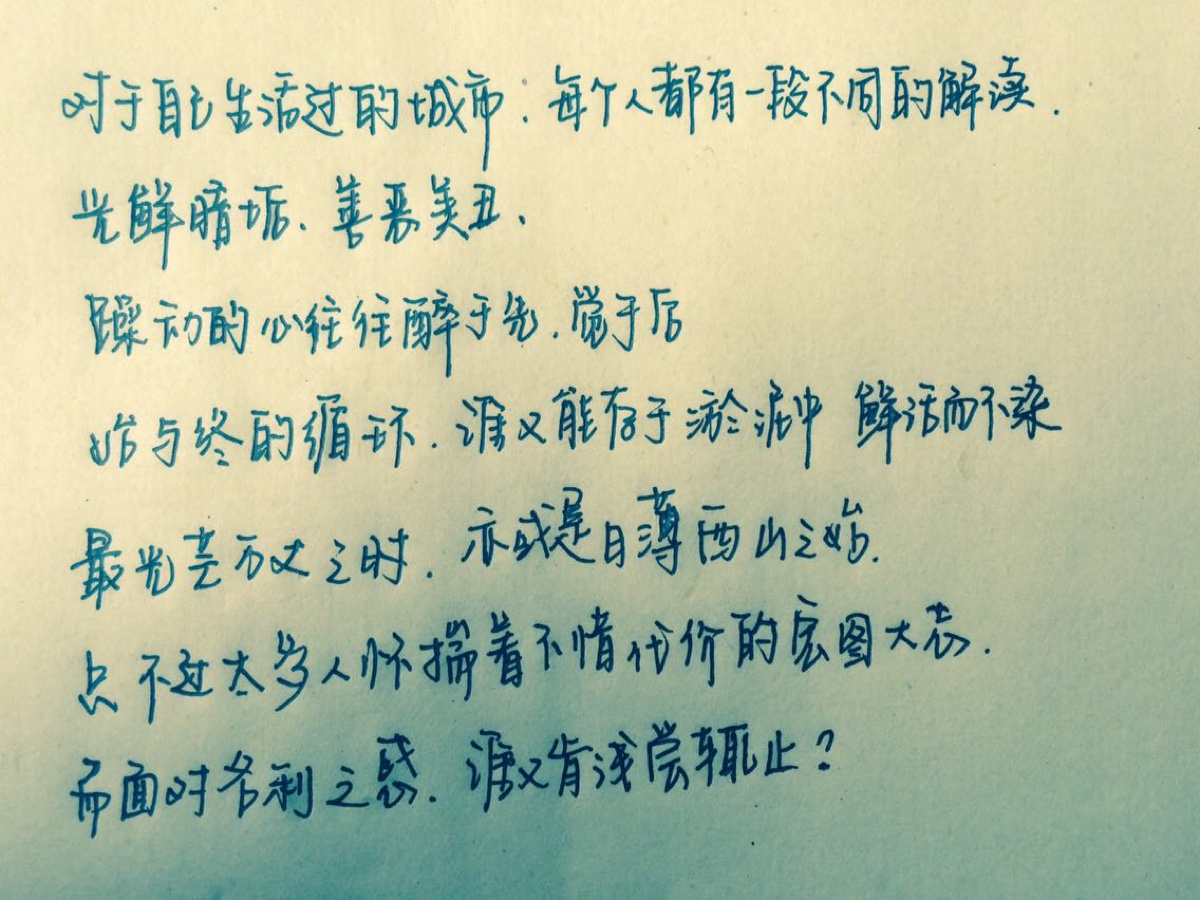 对于自己生活过的城市：每个人都有一段不同的解读.
光鲜暗垢、善恶美丑、
躁动的心往往醉于先、觉于后
始与终的循环、谁又能存于淤泥中 鲜活而不染
最光芒万丈之时、亦或是日薄西山之始.
只不过太多人怀揣着不惜代价的宏图大志.
而面对名利之惑、谁又肯浅尝辄止？